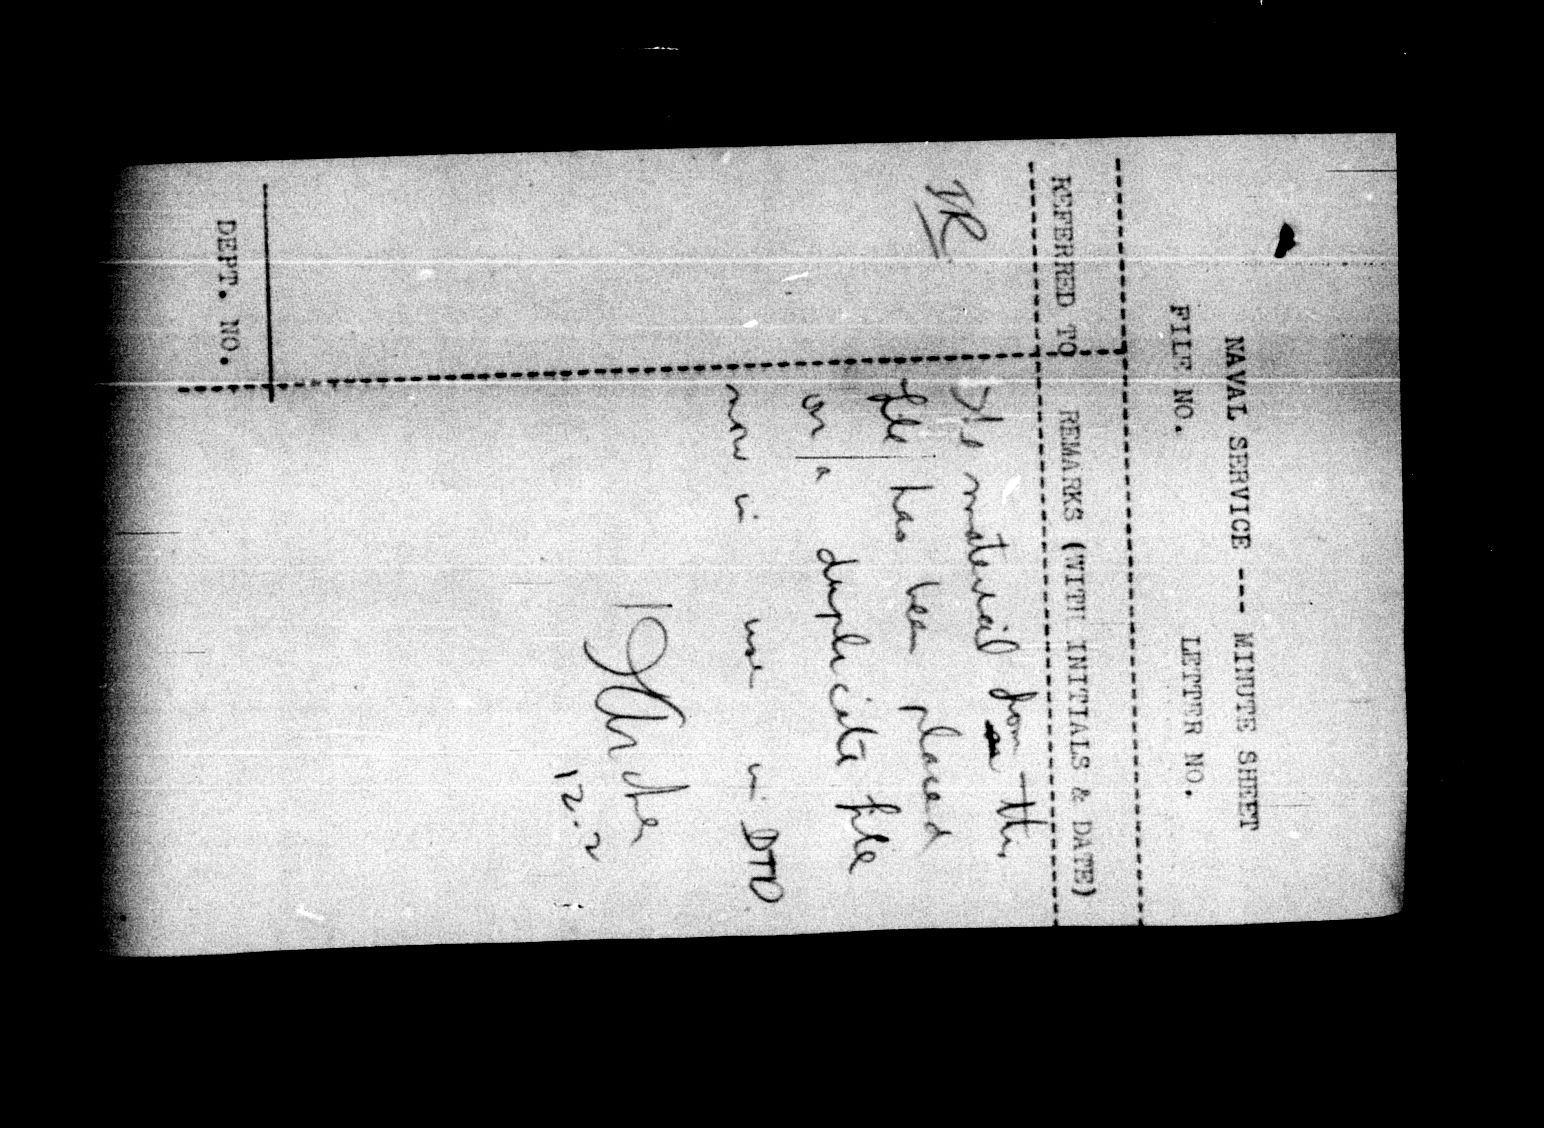 NAVAL SERVICE --- MINUTE SHEET
FILE NO. LETTER NO.
REFERRED TO REMARKS (WITH INITIALS & DATE)
The material from this
file has been placed
on a duplicate file
now in use in DTD
12.2
DEPT. NO.